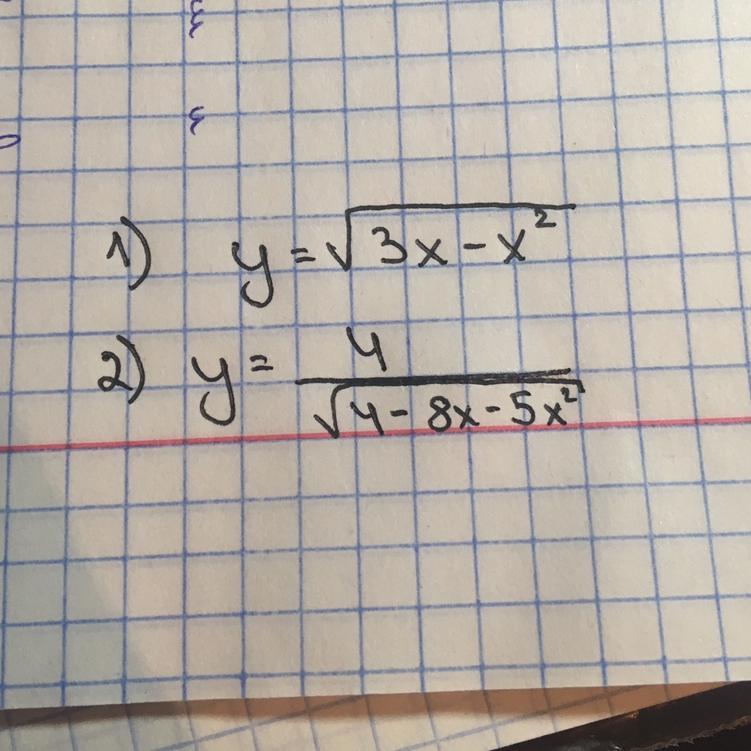 1) y = √(3x - x²)
2) y = 4/√(4 - 8x - 5x²)